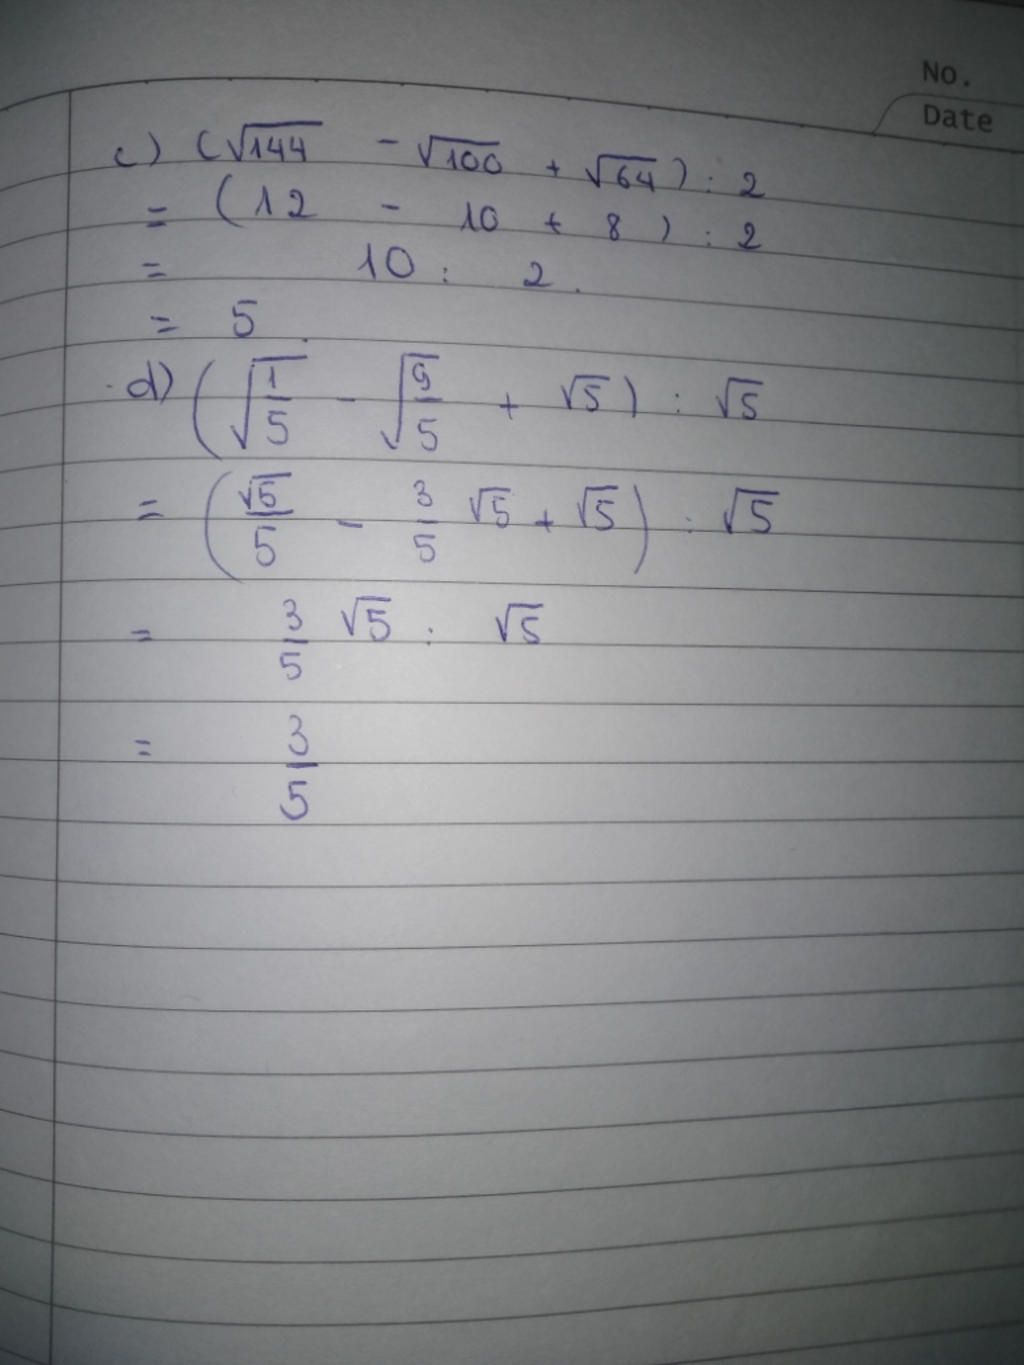 No.
Date
c) (√144 - √100 + √64) : 2
= (12 - 10 + 8) : 2
= 10 : 2.
= 5.
d) (√(1/5) - √(9/5) + √5) : √5
= (√5/5 - 3/5 √5 + √5) : √5
= 3/5 √5 : √5
= 3/5